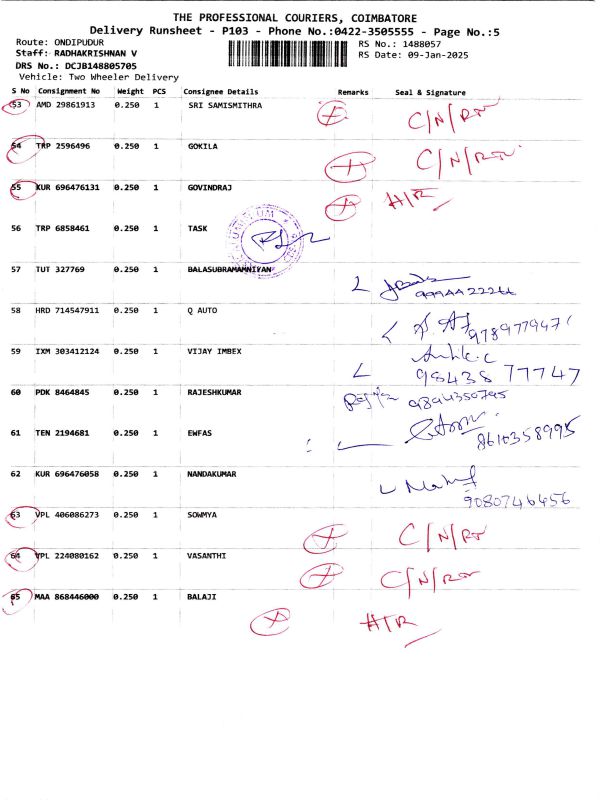 THE PROFESSIONAL COURIERS, COIMBATORE
Delivery Runsheet - P103 - Phone No.:0422-3505555 - Page No.:5
Route: ONDIPUDUR RS No.: 1488057
Staff: RADHAKRISHNAN V RS Date: 09-Jan-2025
DRS No.: DCJB148805705
Vehicle: Two Wheeler Delivery
S No Consignment No Weight PCS Consignee Details Remarks Seal & Signature
53 AMD 29861913 0.250 1 SRI SAMISMITHRA C/N/R
54 TRP 2596496 0.250 1 GOKILA C/N/R
55 KUR 696476131 0.250 1 GOVINDRAJ H/R
56 TRP 6858461 0.250 1 TASK
57 TUT 327769 0.250 1 BALASUBRAMAMNIYAN
58 HRD 714547911 0.250 1 Q AUTO
59 IXM 303412124 0.250 1 VIJAY IMBEX
98438 77747
60 PDK 8464845 0.250 1 RAJESHKUMAR 9894350795
61 TEN 2194681 0.250 1 EWFAS 8610358995
62 KUR 696476058 0.250 1 NANDAKUMAR
9080746456
63 VPL 406086273 0.250 1 SOWMYA C/N/R
64 VPL 224080162 0.250 1 VASANTHI C/N/R
65 MAA 868446000 0.250 1 BALAJI
H/R